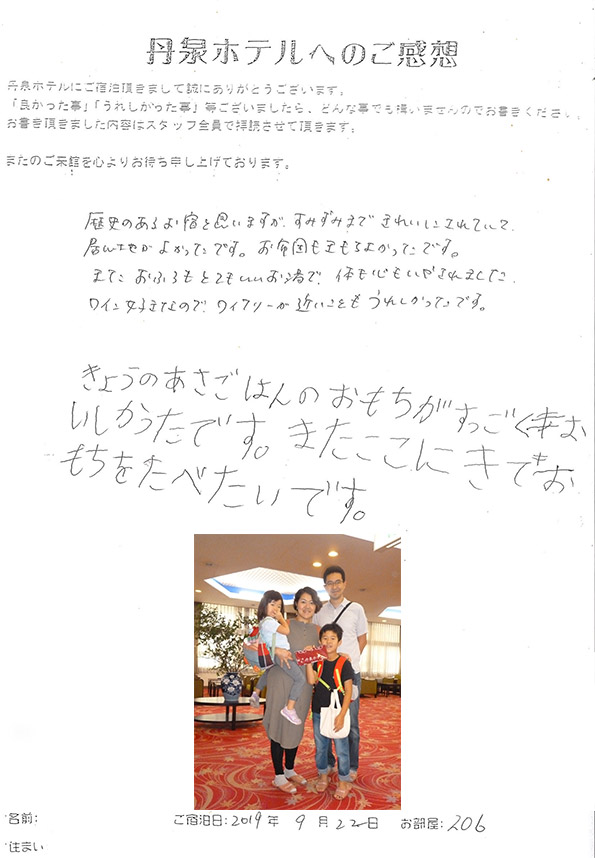 丹泉ホテルへのご感想
丹泉ホテルにご宿泊頂きまして誠にありがとうございます。
「良かった事」「うれしかった事」等ございましたら、どんな事でも構いませんのでお書きください。
お書き頂きました内容はスタッフ全員で拝読させて頂きます。
またのご来館を心よりお待ち申し上げております。
歴史のあるお宿と思いますが、すみずみまできれいにされていて、
居心地がよかったです。お布団もきもちよかったです。
また おふろもとてもいいお湯で、体も心もいやされました。
ワイン好きなので、ワイナリーが近いことも うれしかったです。
きょうのあさごはんのおもちがすっごくお
いしかったです。またここにきてお
もちをたべたいです。
名前:
ご宿泊日:2019年 9月22日 お部屋:206
住まい